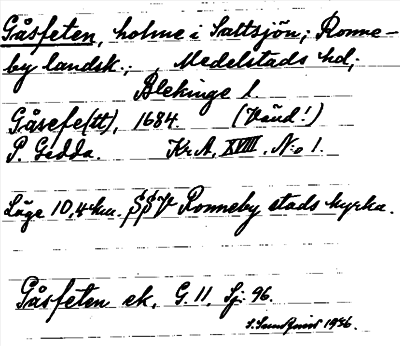 Gåsfeten, holme i Saltsjön; Ronne-
by landsk.; , Medelstads hd;
Blekinge l.
Gåsefe(tt), 1684. (Vänd!)
P. Gedda. Kr.A. XVIII. No 1.
Läge 10,4 km. SSV Ronneby stads kyrka.
Gåsfeten ek. G. 11, Sj. 96.
1936.